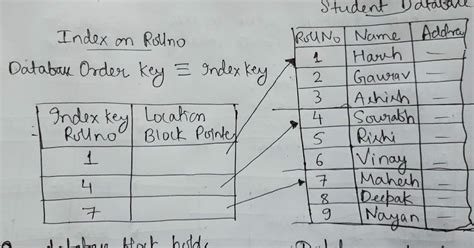 Student Database
Index on RollNo
Database Order Key ≡ Index Key
Index Key Location
RollNo Block Pointer
1
4
7
RollNo Name Address
1 Harsh —
2 Gaurav —
3 Ashish —
4 Sourabh —
5 Rishi —
6 Vinay —
7 Mahesh —
8 Deepak —
9 Nayan —
database block holds